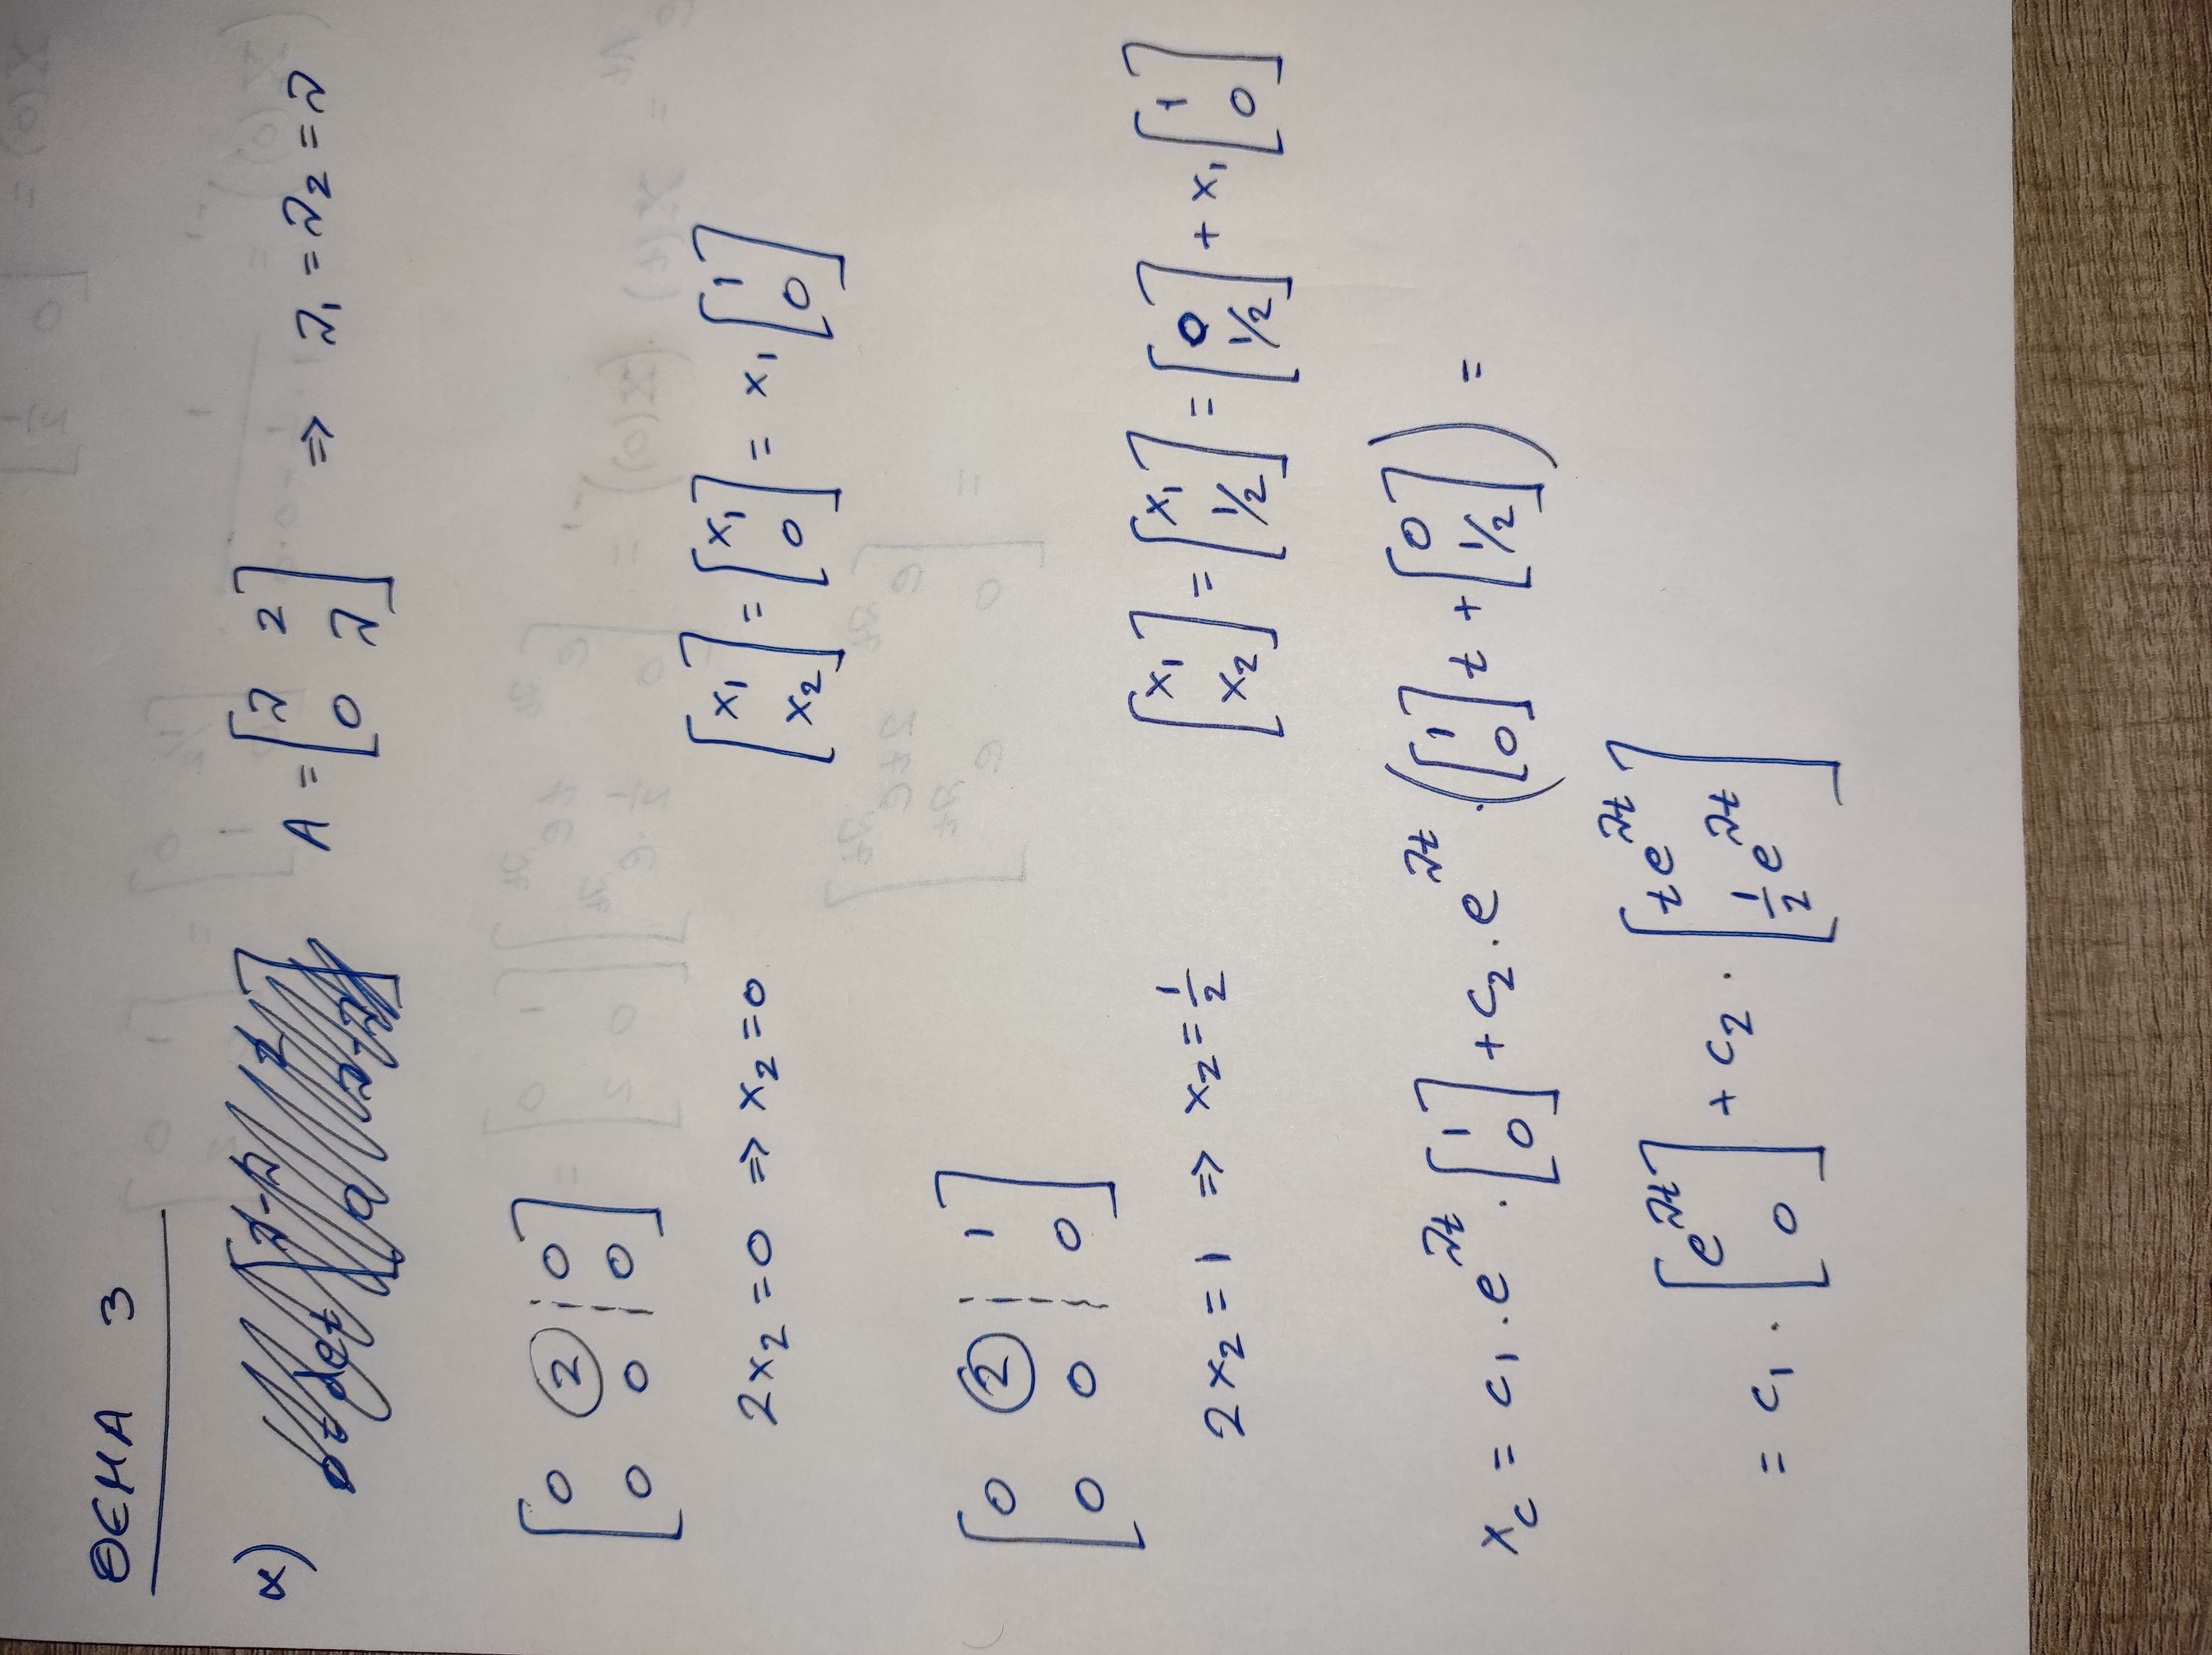 ΘΕΜΑ 3
α) A = [λ 2; 0 λ] ⇒ λ₁ = λ₂ = λ
[0 2 ¦ 0; 0 0 ¦ 0]
2x₂ = 0 ⇒ x₂ = 0 [x₁; x₂] = [x₁; 0] = x₁ [1; 0]
[0 2 ¦ 1; 0 0 ¦ 0]
2x₂ = 1 ⇒ x₂ = 1/2 [x₁; x₂] = [x₁; 1/2] = [0; 1/2] + x₁ [1; 0]
x_c = c₁ · e^{λt} · [1; 0] + c₂ · e^{λt} · ([1; 0] t + [0; 1/2]) =
= c₁ · [e^{λt}; 0] + c₂ · [t e^{λt}; 1/2 e^{λt}]